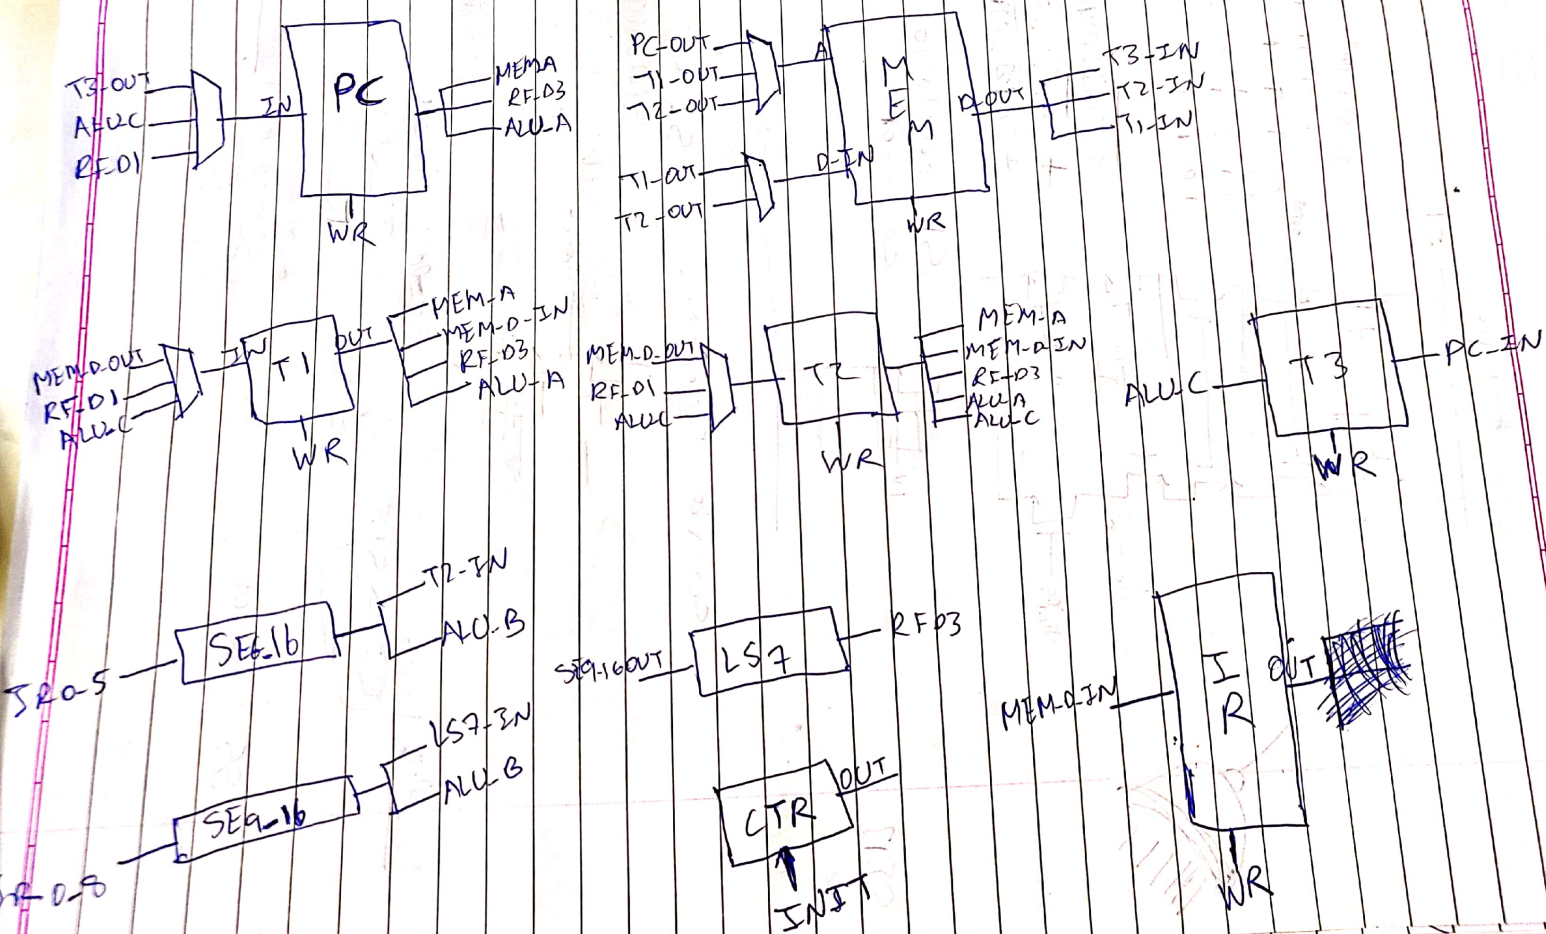 T3-OUT
ALU-C
RF-D1
IN
PC
MEMA
RF-D3
ALU-A
WR
PC-OUT
T1-OUT
T2-OUT
A
T1-OUT
T2-OUT
D-IN
MEM
D-OUT
T3-IN
T2-IN
T1-IN
WR
MEM-D-OUT
RF-D1
ALU-C
IN
T1
OUT
MEM-A
MEM-D-IN
RF-D3
ALU-A
WR
MEM-D-OUT
RF-D1
ALU-C
T2
MEM-A
MEM-D-IN
RF-D3
ALU-A
ALU-C
WR
ALU-C
T3
PC-IN
WR
IR0-5
SE6-16
T2-IN
ALU-B
SE9-16OUT
LS7
RFD3
MEM-D-IN
IR
OUT
WR
IR-0-8
SE9-16
LS7-IN
ALU-B
CTR
OUT
INIT